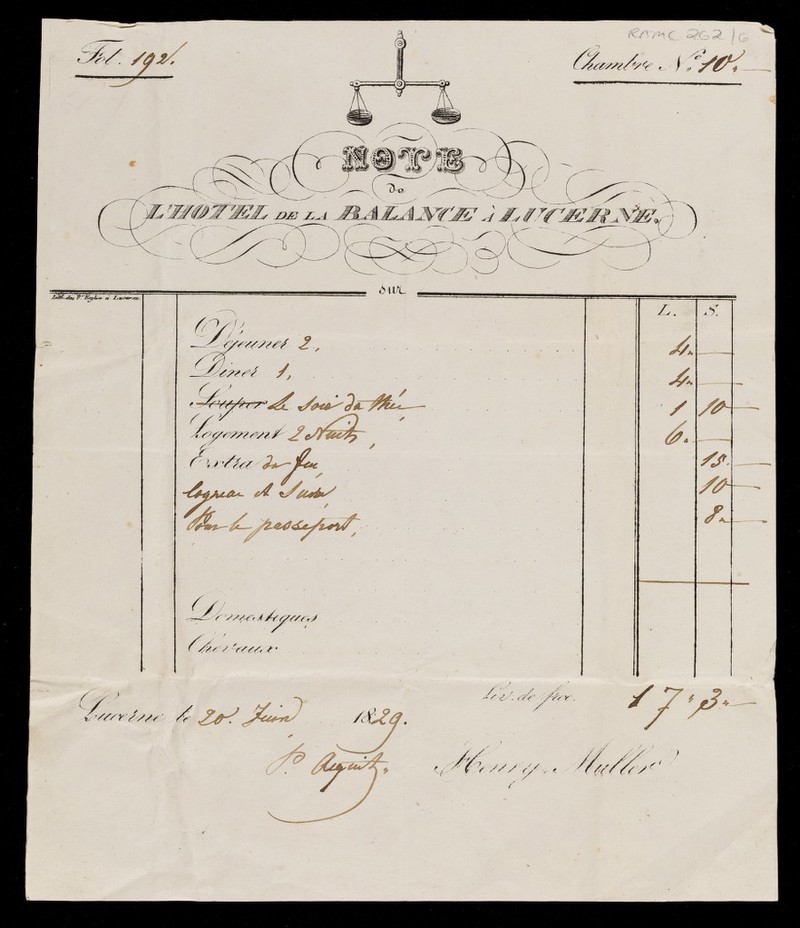 RAMC 262/6
Fol. 192.
Chambre No. 10.
NOTE
de
L'HOTEL DE LA BALANCE À LUCERNE.
sur
L. S.
Déjeuner 2, 4.
Diner 1, 4.
Souper Le Soir du thée 1 10
Logement 2 Nuits, 6.
Extra du feu, 15.
Cognac et Sucre 10
Pour le passeport, 8.
Domestiques
Chevaux
Liv. de frce. 17 " 3 "
Lucerne le 20. Juin 1829.
P. Acquit.
Henry Muller